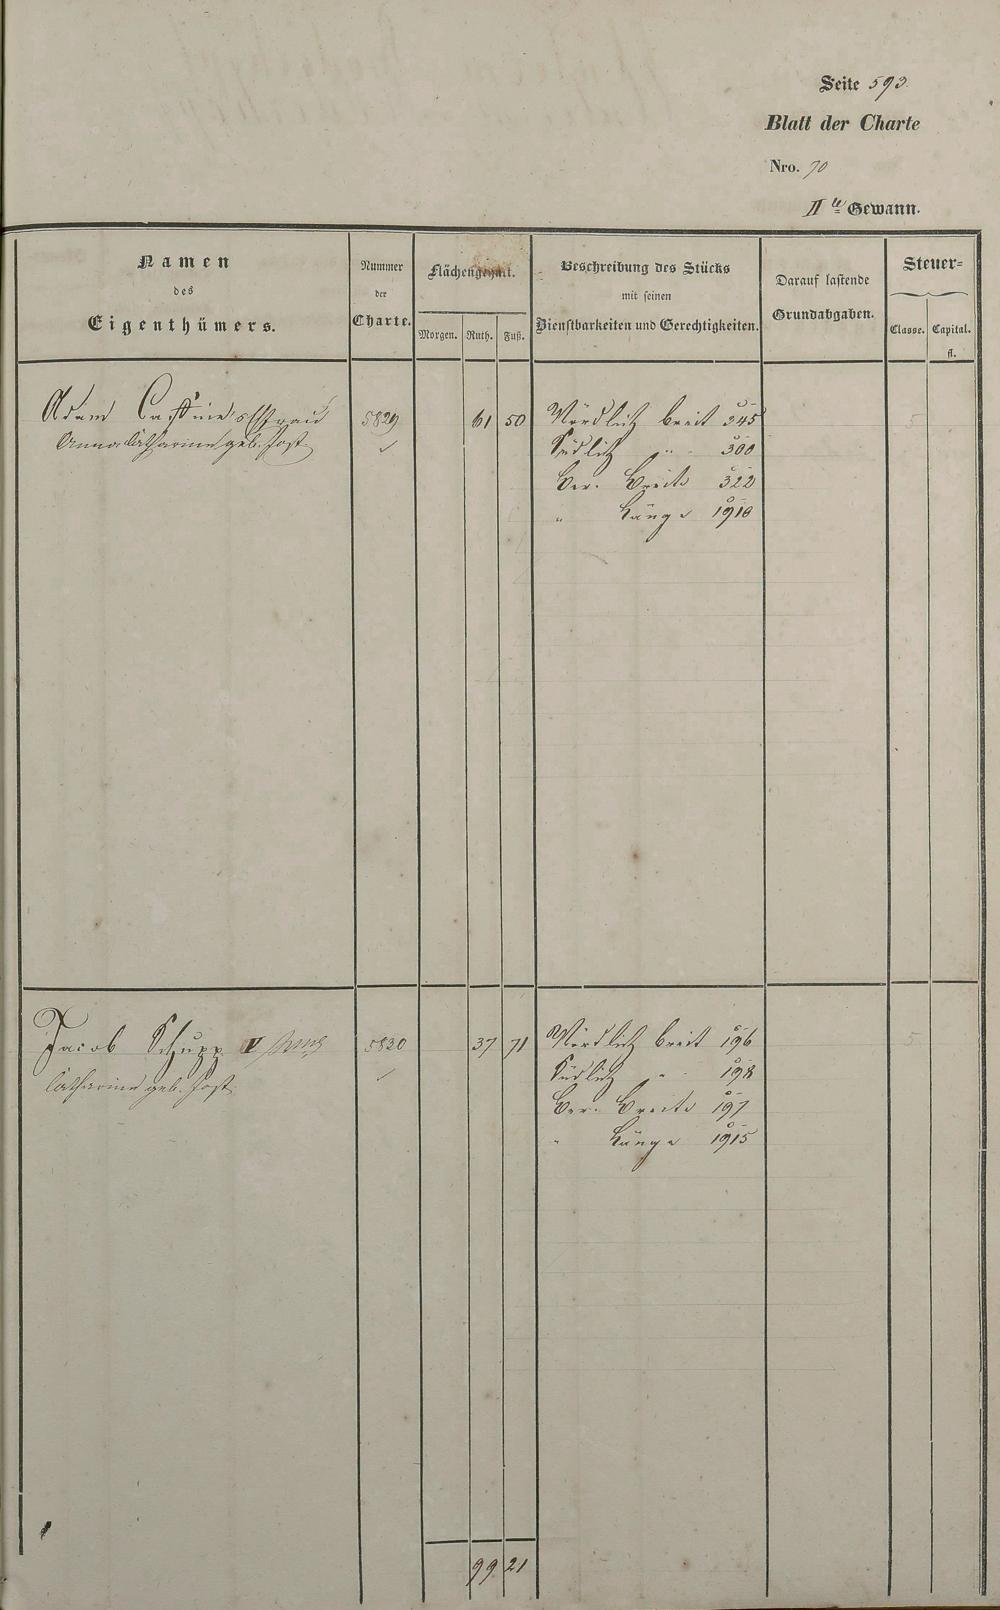 Seite 593
Blatt der Charte
Nro. 70
IIte Gewann.
Namen
des
Eigenthümers.
Nummer
der
Charte.
Flächengehalt.
Morgen. Ruth. Fuß.
Beschreibung des Stücks
mit seinen
Dienstbarkeiten und Gerechtigkeiten.
Darauf lastende
Grundabgaben.
Steuer=
Classe. Capital.
fl.
Adam Ehfrau 5829 61 50 Nördlich breit 345 5
Anna Catharine geb. Jost Südlich „ 300
Ver. Breite 322
„ Länge 1910
Jacob Schupp V 5830 37 71 Nördlich breit 196 5
Catharine geb. Jost Südlich „ 198
Ver. Breite 197
„ Länge 1915
99 21